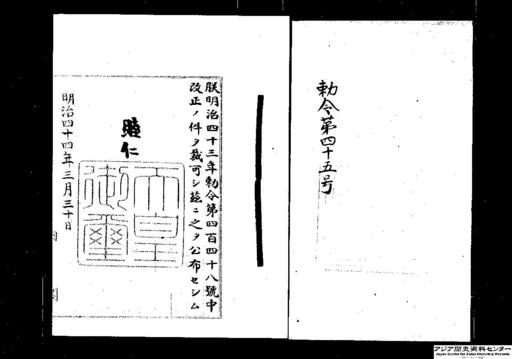 勅令第四十五号
朕明治四十三年勅令第四百四十八號中
改正ノ件ヲ裁可シ茲ニ之ヲ公布セシム
睦仁
天皇
御璽
明治四十四年三月三十日
アジア歴史資料センター
Japan Center for Asian Historical Records